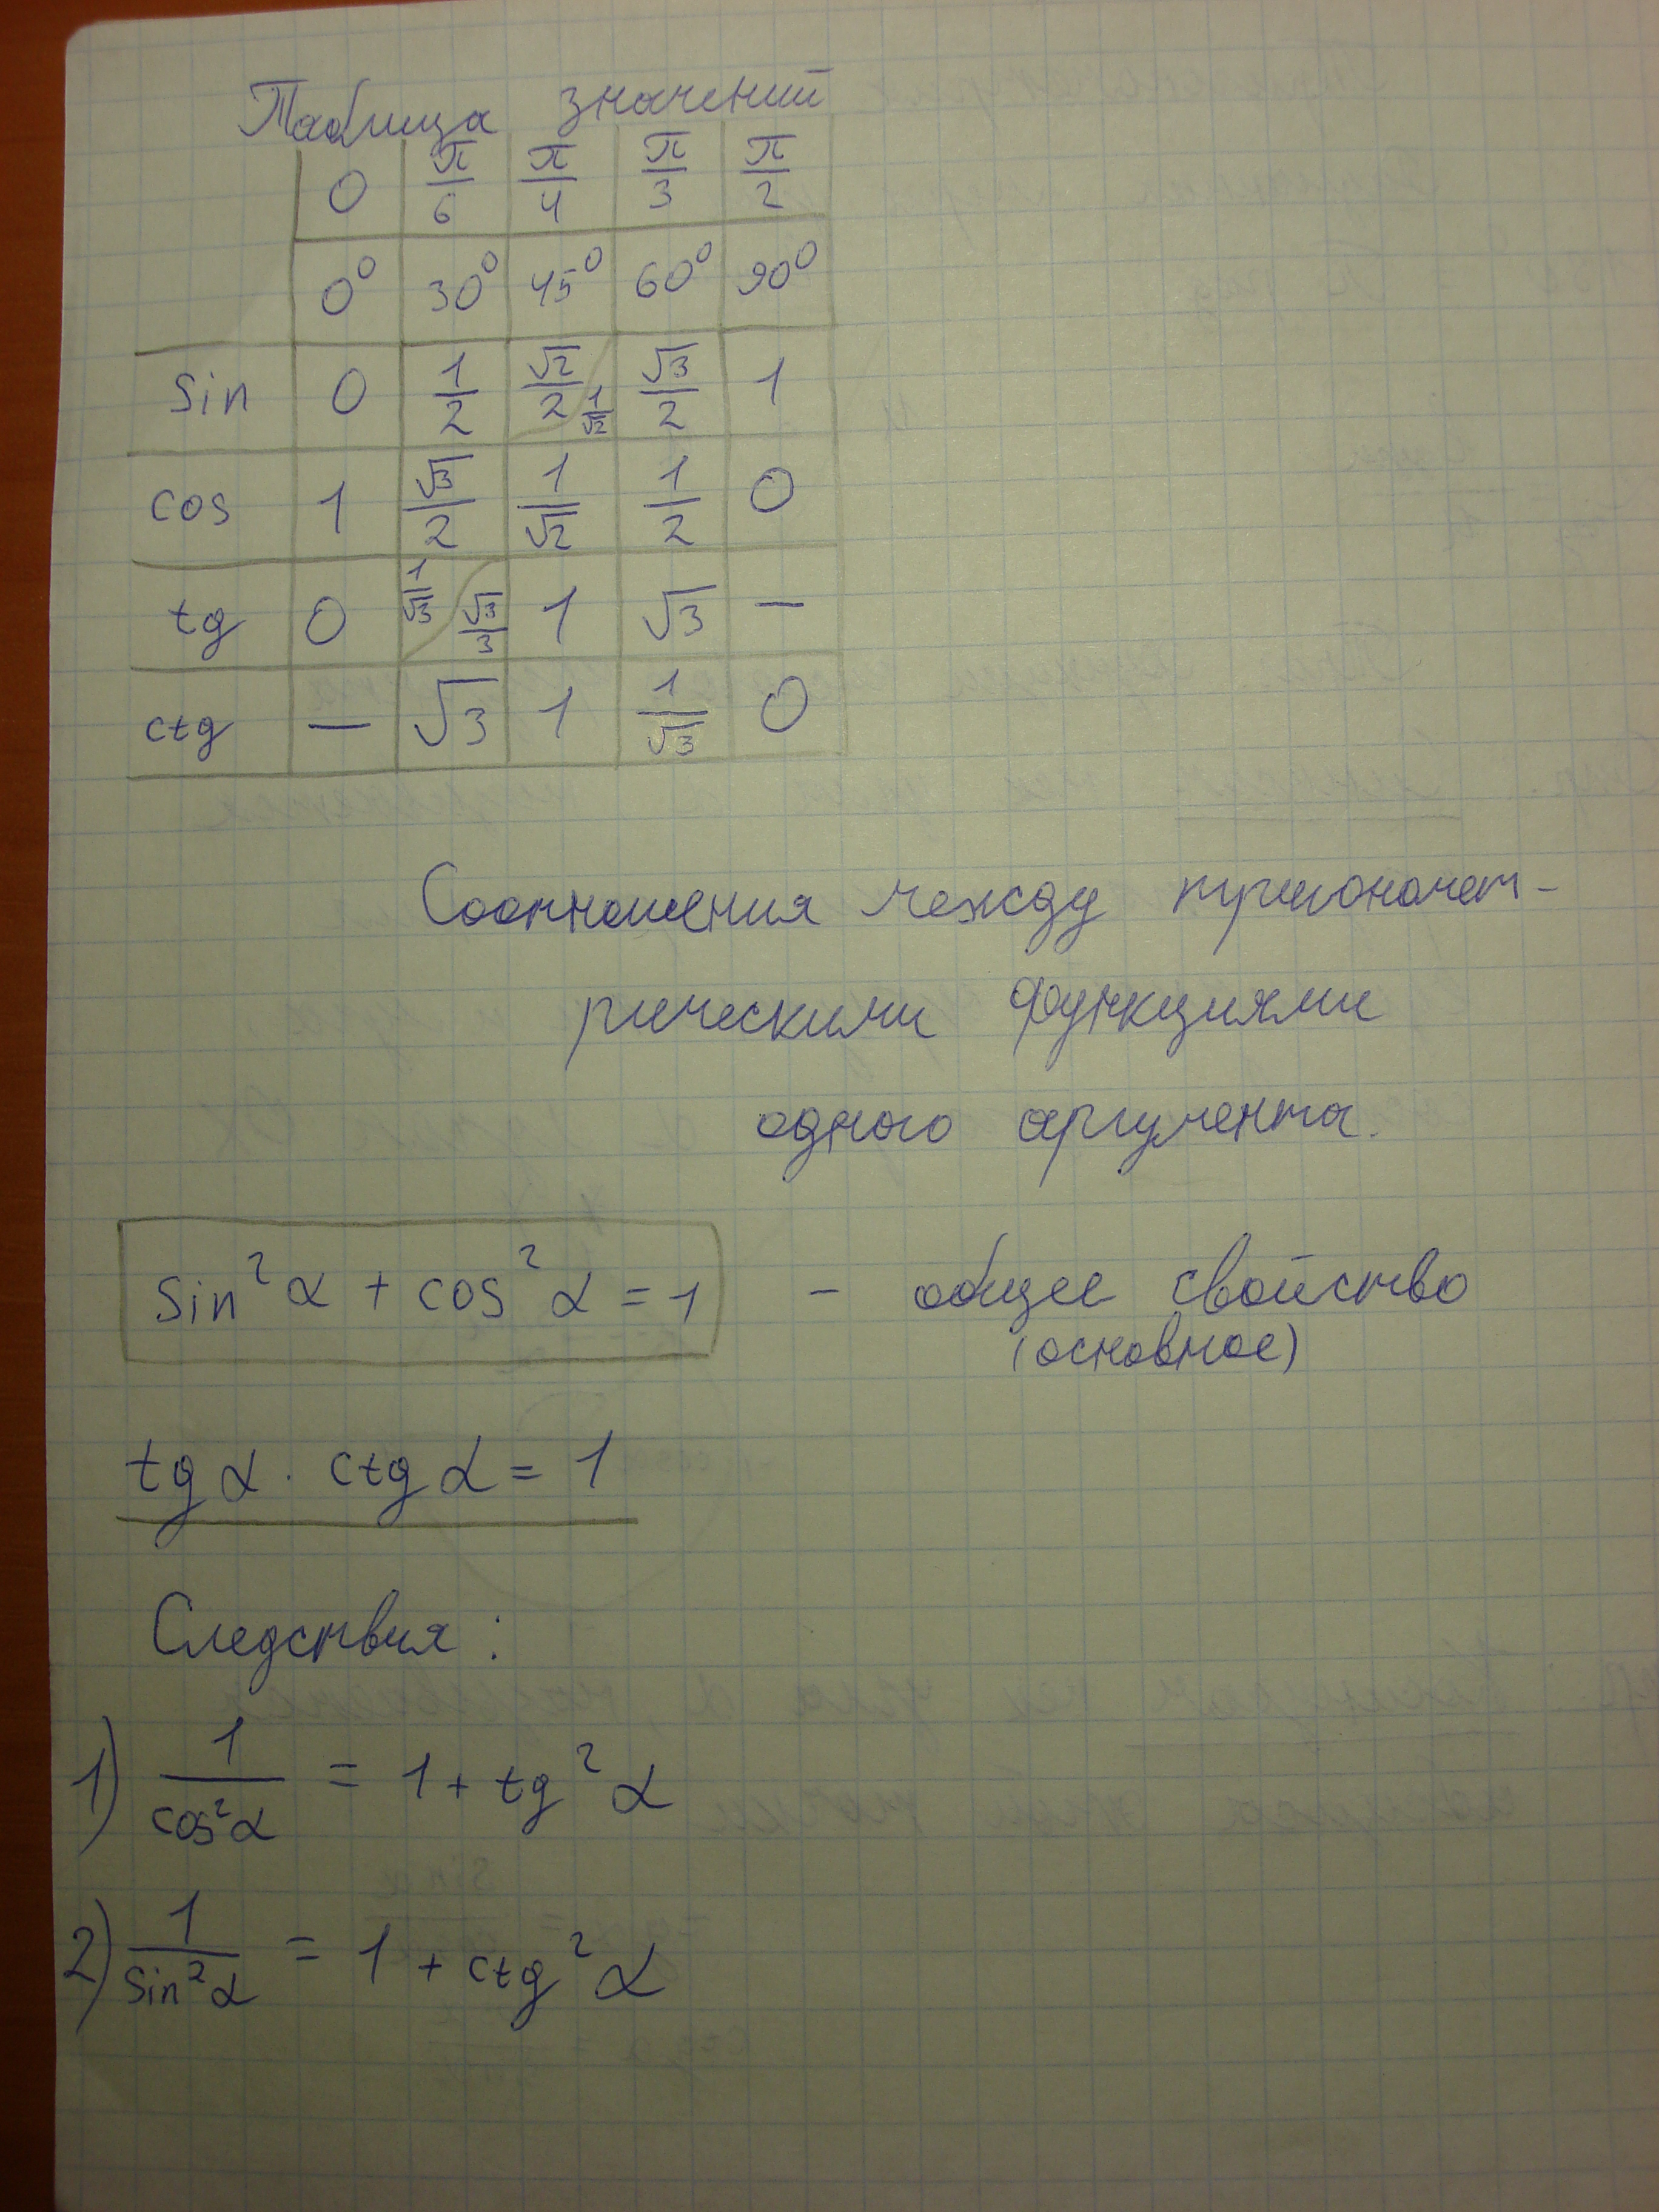 Таблица значений
0 π/6 π/4 π/3 π/2
0⁰ 30⁰ 45⁰ 60⁰ 90⁰
sin 0 1/2 √2/2 1/√2 √3/2 1
cos 1 √3/2 1/√2 1/2 0
tg 0 1/√3 √3/3 1 √3 —
ctg — √3 1 1/√3 0
Соотношения между тригономет-
рическими функциями
одного аргумента.
sin²α + cos²α = 1 - общее свойство
(основное)
tg α · ctg α = 1
Следствия:
1) 1/cos²α = 1 + tg²α
2) 1/sin²α = 1 + ctg²α